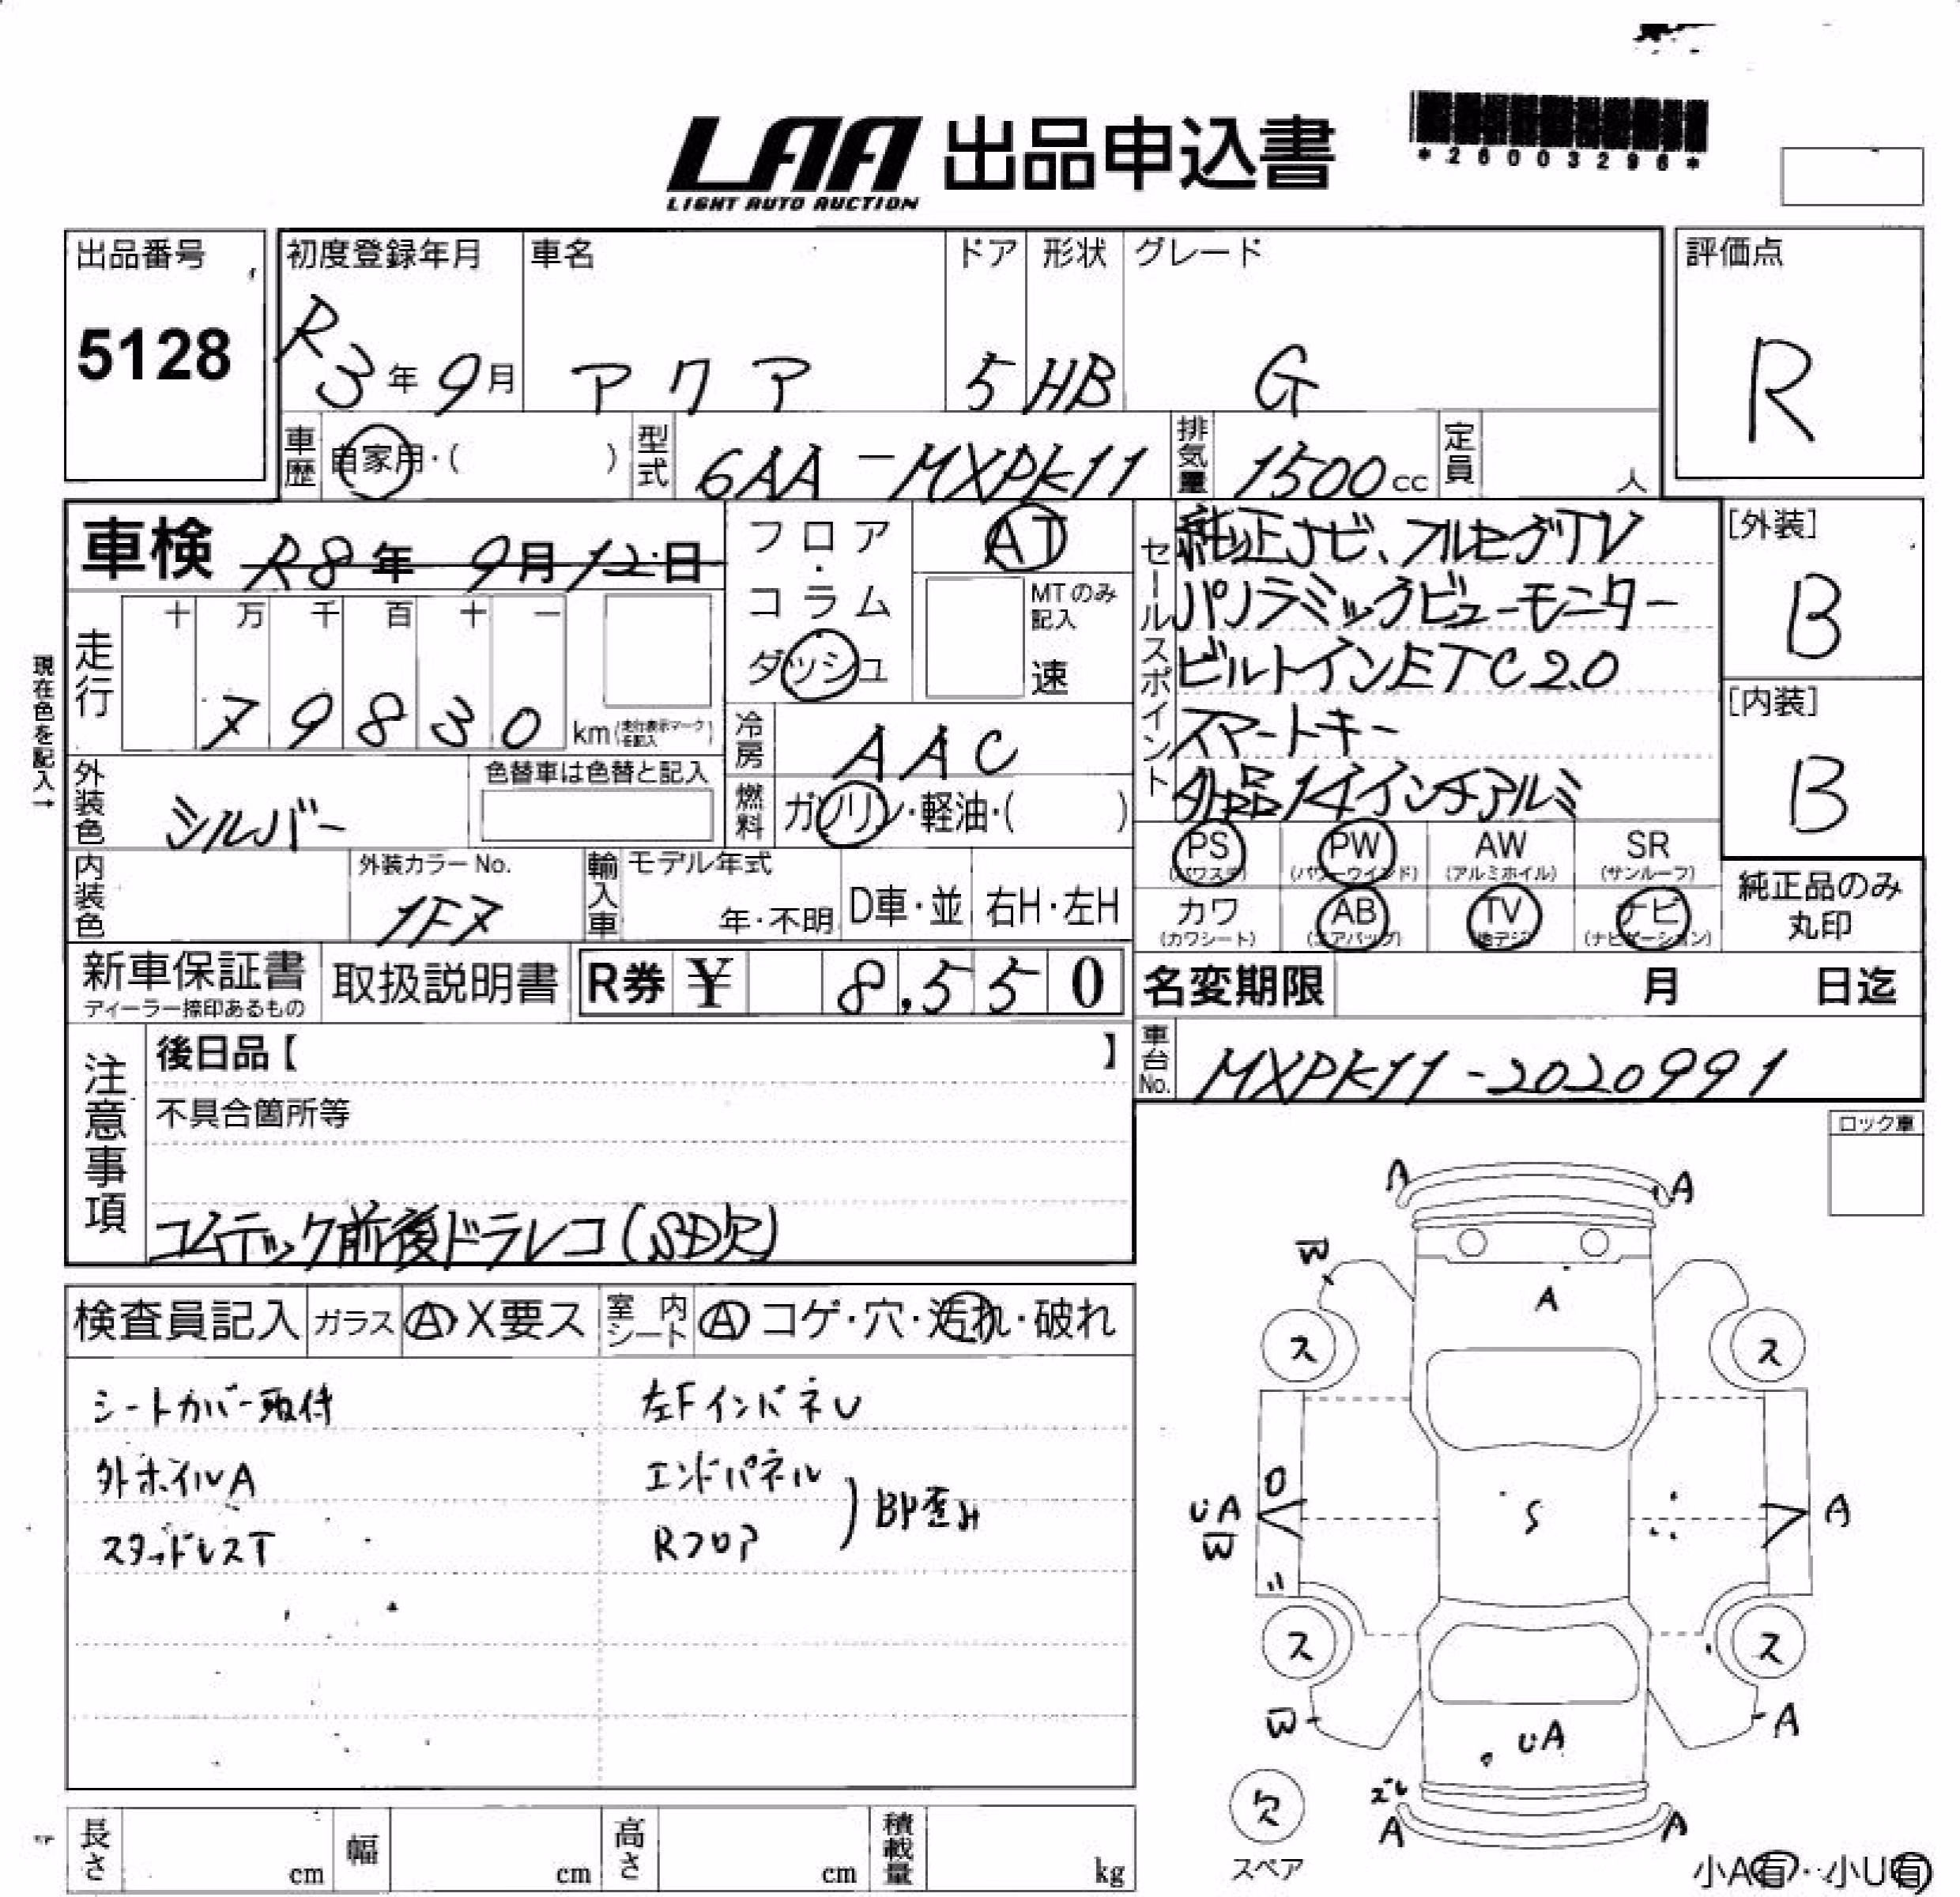 LAA 出品申込書
LIGHT AUTO AUCTION
*26003296*
出品番号
5128
初度登録年月
R3年9月
車名
アクア
ドア
5
形状
HB
グレード
G
評価点
R
車歴
自家用・( )
型式
6AA-MXPK11
排気量
1500cc
定員
人
車検 R8年 9月12日
現在色を記入→
走行
十 万 千 百 十 一
7 9 8 3 0 km(走行表示マークを記入)
フロア・コラム
ダッシュ
AT
MTのみ記入
速
冷房
AAC
燃料
ガソリン・軽油・( )
セールスポイント
純正ナビ、フルセグTV
パノラミックビューモニター
ビルトインETC2.0
スマートキー
外品14インチアルミ
[外装]
B
[内装]
B
外装色
シルバー
色替車は色替と記入
内装色
外装カラーNo.
1F7
輸入車
モデル年式
年・不明
D車・並
右H・左H
PS (パワステ)
PW (パワーウインド)
AW (アルミホイル)
SR (サンルーフ)
カワ (カワシート)
AB (エアバッグ)
TV (地デジ)
ナビ (ナビゲーション)
純正品のみ
丸印
新車保証書
ディーラー捺印あるもの
取扱説明書
R券 ¥ 8,550
名変期限 月 日迄
車台No.
MXPK11-2020991
注意事項
後日品【 】
不具合箇所等
コムテック前後ドラレコ(SD欠)
ロック車
検査員記入
ガラス
A X要ス
室内シート
A コゲ・穴・汚れ・破れ
シートカバー取付
外ホイルA
スタッドレスT
左FインパネU
エンドパネル
Rフロア
)BP歪み
A A
W
A
ス ス
O
UA
W
S
A
〃
ス ス
W
A
UA
ズレ
A A
欠
スペア
小A有・小U有
長さ cm
幅 cm
高さ cm
積載量 kg